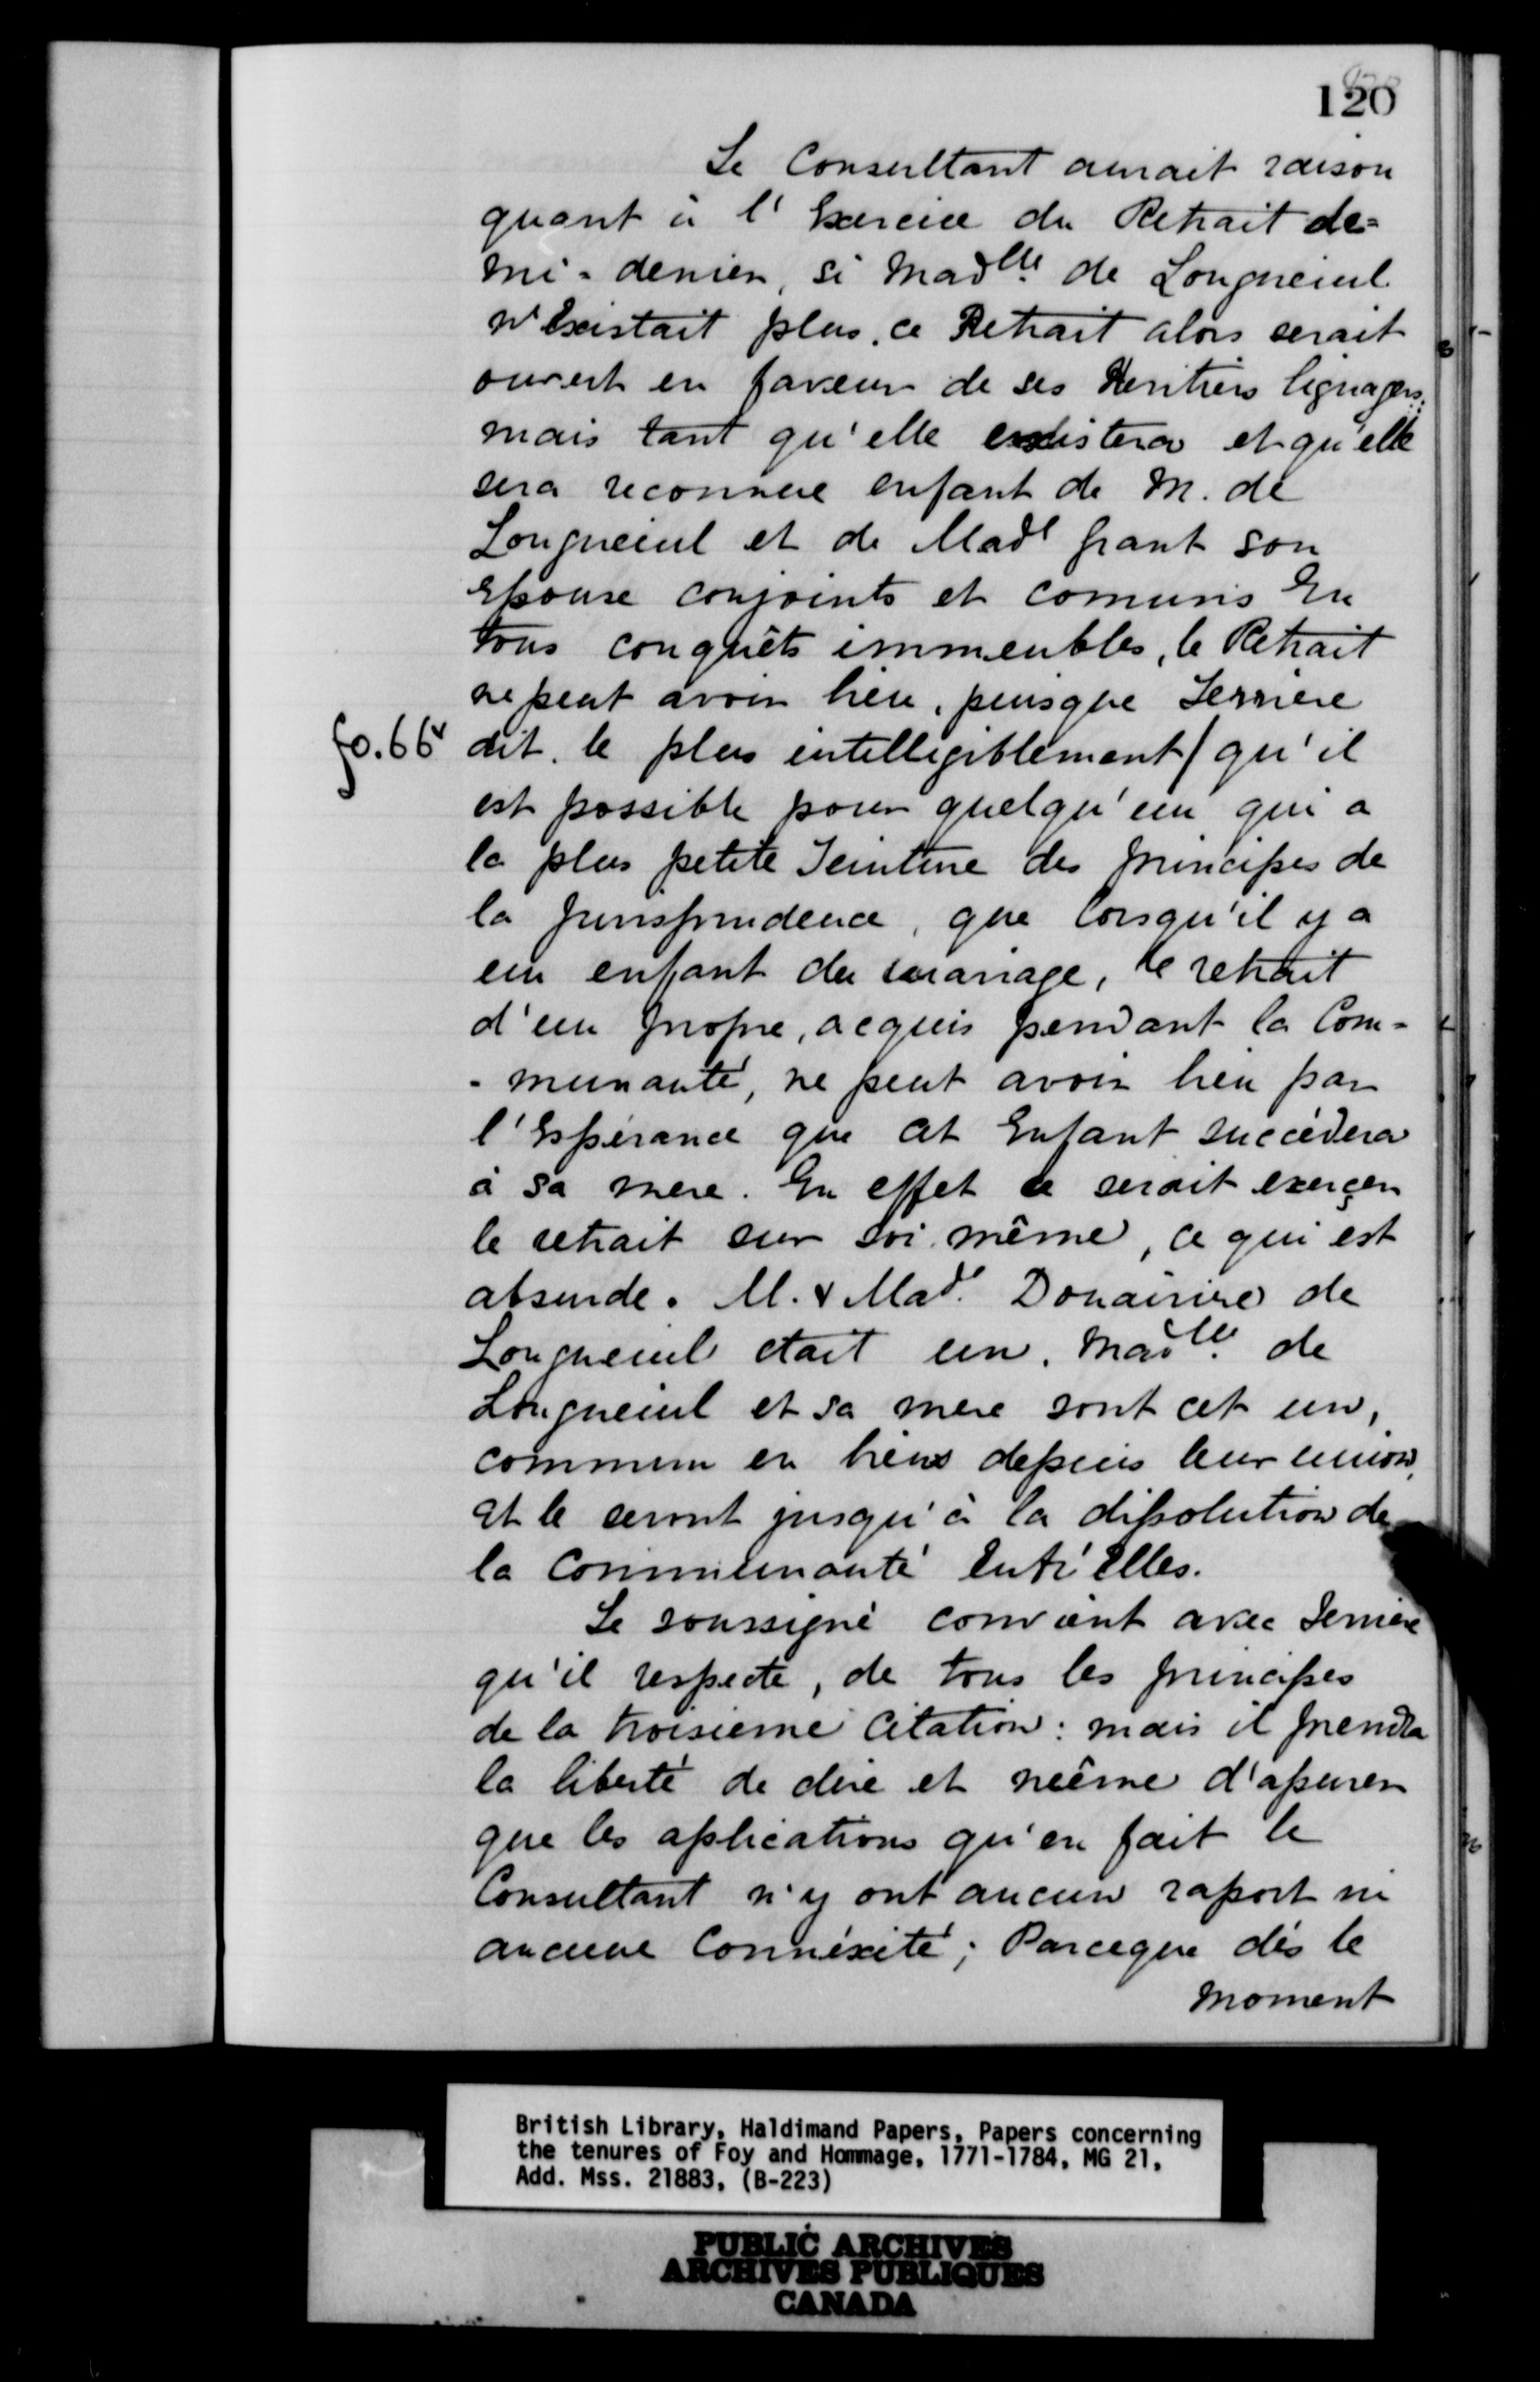 120
Le Consultant aurait raison
quant à l'Exercice du Retrait de=
mi-denier, si Madlle de Longueuil
n'Existait plus, ce Retrait alors serait
ouvert en faveur de ses Heritiers lignagers;
mais tant qu'elle existera et qu'elle
sera reconnue enfant de M. de
Longueuil et de Made Grant son
Epouse conjoints et comuns En
tous conquêts immeubles, le Retrait
ne peut avoir lieu, puisque Ferriere
fo. 66v dit, le plus intelligiblement / qu'il
est possible pour quelqu'un qui a
la plus petite Teinture des principes de
la Jurisprudence, que lorsqu'il y a
un enfant du mariage, le retrait
d'un propre, acquis pendant la Com-
-munauté, ne peut avoir lieu par
l'Espérance que cet Enfant succédera
à sa mere. En effet ce serait exerçer
le retrait sur soi même, ce qui est
absurde. M. & Made. Douairiere de
Longueuil etait un, Madlle. de
Longueuil et sa mere sont cet un,
commun en biens depuis leur union,
et le seront jusqu'à la dissolution de
la Communauté Entr'Elles.
Le soussigné convient avec Ferriere
qu'il respecte, de tous les principes
de la troisieme Citation: mais il prendra
la liberté de dire et même d'assurer
que les aplications qu'en fait le
Consultant n'y ont aucun raport ni
aucune Connéxité; Parceque dès le
moment
British Library, Haldimand Papers, Papers concerning
the tenures of Foy and Hommage, 1771-1784, MG 21,
Add. Mss. 21883, (B-223)
PUBLIC ARCHIVES
ARCHIVES PUBLIQUES
CANADA